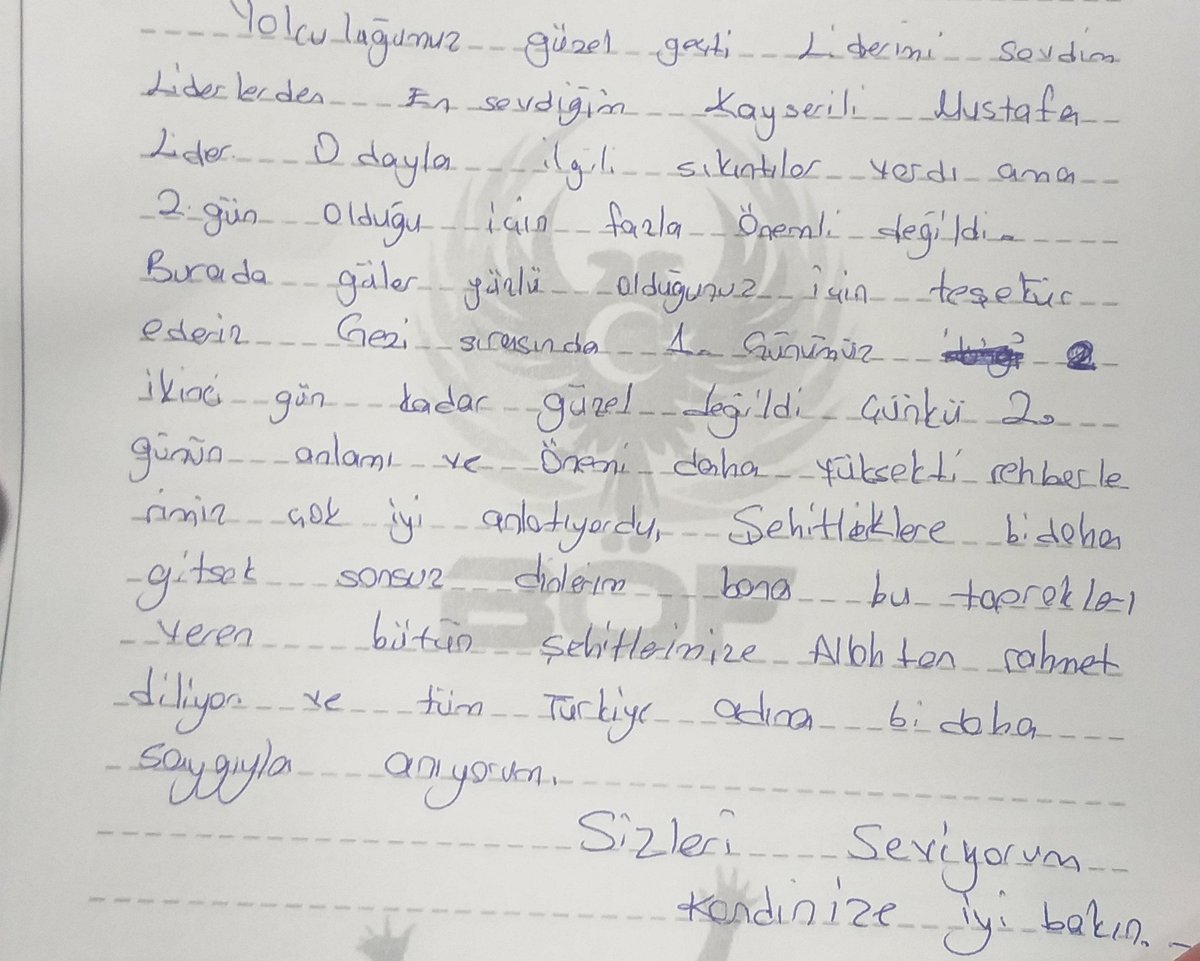 Yolculuğumuz güzel geçti Liderimi sevdim
Liderlerden En sevdiğim Kayserili Mustafa
Lider. Odayla ilgili sıkıntılar vardı ama
2. gün olduğu için fazla Önemli değildi.
Burada güler yüzlü olduğunuz için teşekür
ederiz Gezi sırasında 1. Günümüz 2
ikinci gün kadar güzel değildi Çünkü 2.
günün anlamı ve Önemi daha yüksekti rehberle
rimiz çok iyi anlatıyordu, Şehitliklere bi daha
gitsek sonsuz dinlerim bana bu toprakları
veren bütün şehitlerimize Allahtan rahmet
diliyor ve tüm Türkiye adına bi daha
saygıyla anıyorum.
BÖF
Sizleri Seviyorum
Kendinize iyi bakın.